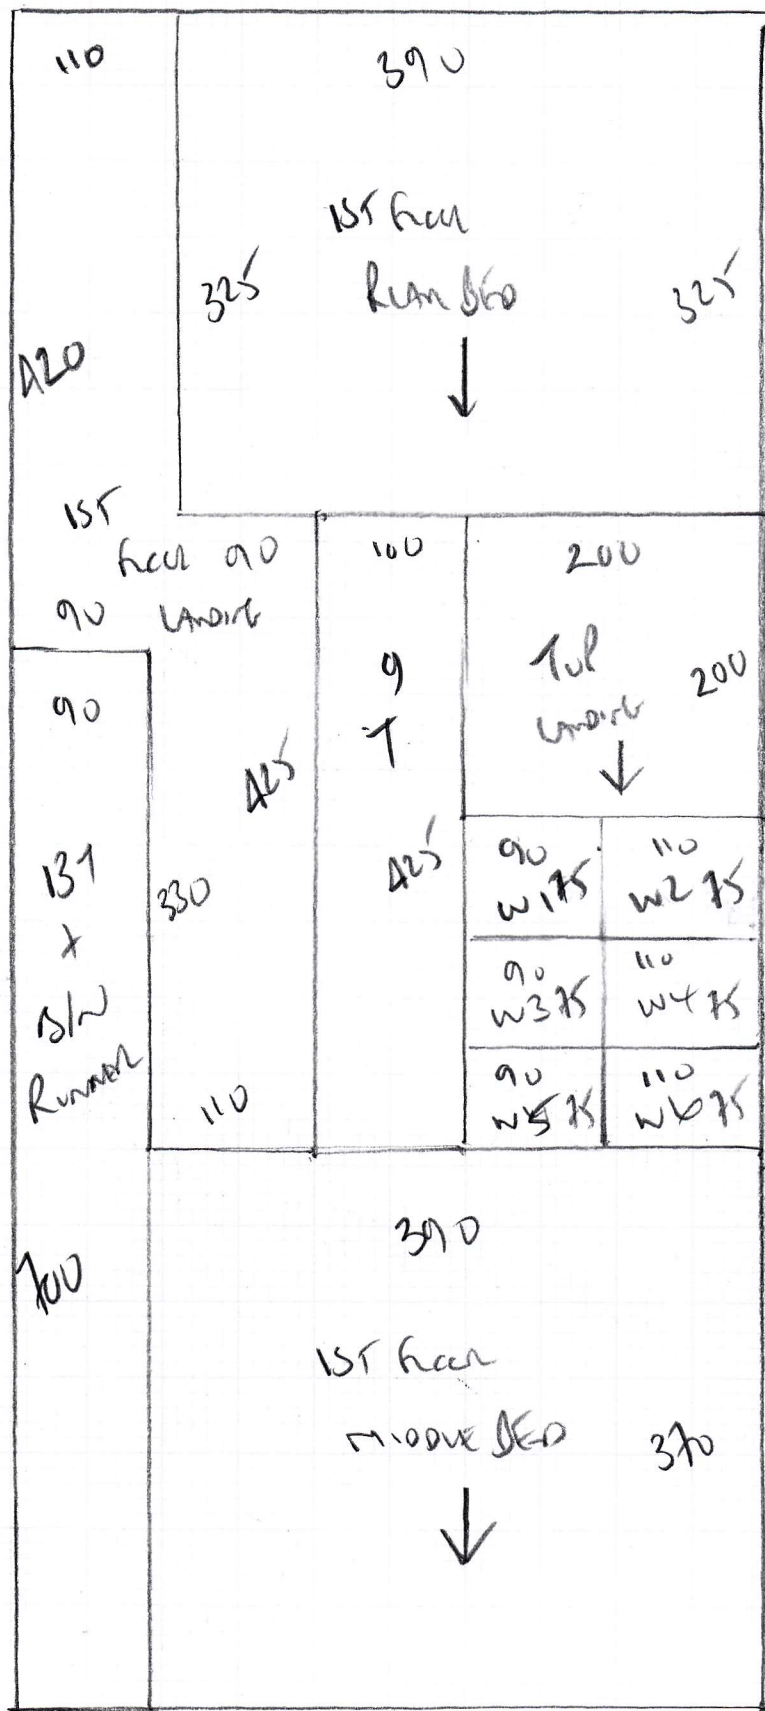 110
390
1ST FLOOR
REAR BED
325
325
420
1ST
FLOOR 90
90 LANDING
100
200
9
T
TOP
LANDING
200
90
425
425
330
13T
+
B/N
RUNNER
110
90
W1 75
110
W2 75
90
W3 75
110
W4 75
90
W5 75
110
W6 75
700
390
1ST FLOOR
MIDDLE BED
370